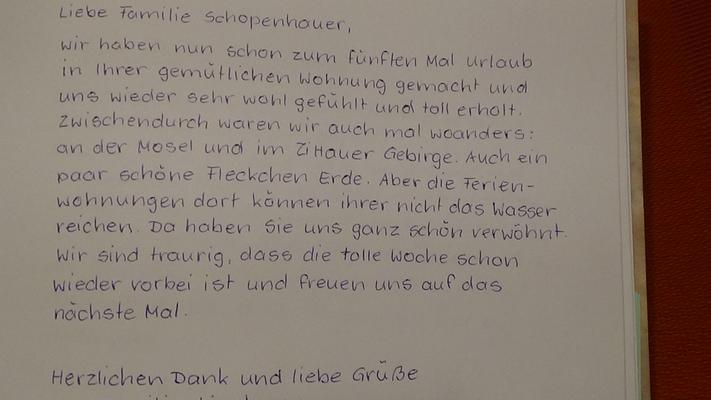 Liebe Familie Schopenhauer,
wir haben nun schon zum fünften Mal Urlaub
in Ihrer gemütlichen Wohnung gemacht und
uns wieder sehr wohl gefühlt und toll erholt.
Zwischendurch waren wir auch mal woanders:
an der Mosel und im Zittauer Gebirge. Auch ein
paar schöne Fleckchen Erde. Aber die Ferien-
wohnungen dort können ihrer nicht das Wasser
reichen. Da haben Sie uns ganz schön verwöhnt.
Wir sind traurig, dass die tolle Woche schon
wieder vorbei ist und freuen uns auf das
nächste Mal.
Herzlichen Dank und liebe Grüße